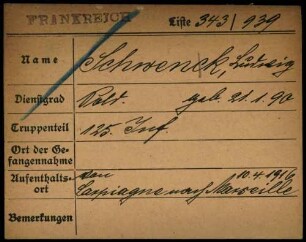 FRANKREICH Liste 343/939
Name Schwenck, Ludwig
Dienstgrad Sold. geb. 21.1.90
Truppenteil 125. Inf.
Ort der Ge-
fangennahme
Aufenthalts-
ort von 10.4.1916
nach Marseille
Bemerkungen